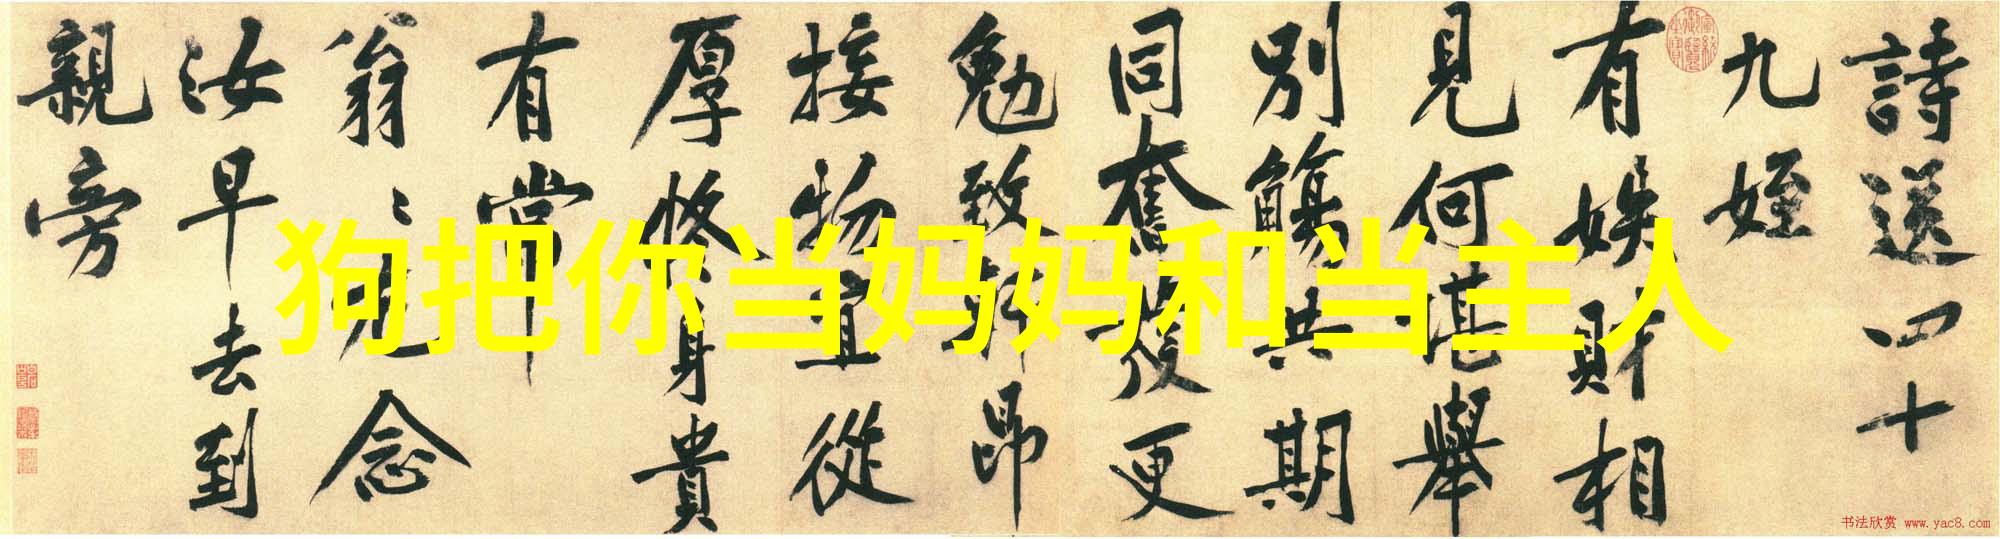 詩送四十
九姪
有相
見何堪舉
別觴共期
同奮發更
勉致軒昂
接物宜從
厚修身貴
有常
翁〻念
汝早去到
親旁
狗把你当妈妈和当主人
书法欣赏 www.yac8.com